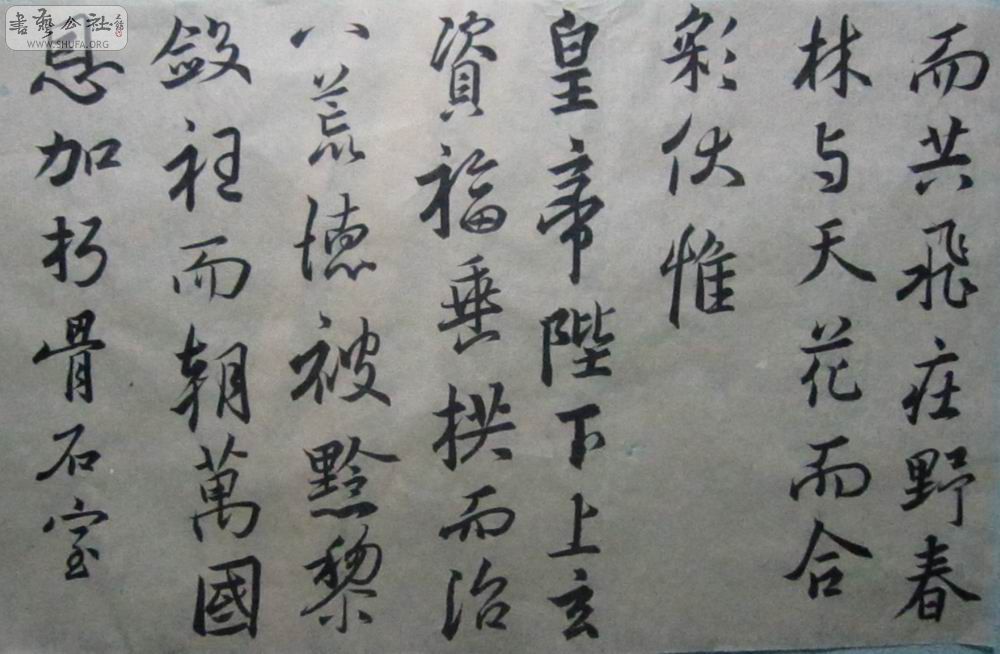 而共飛庄野春
林与天花而合
彩伏惟
皇帝陛下上玄
資福垂拱而治
八荒德被黔黎
斂衽而朝萬國
恩加朽骨石室
書藝公社
WWW.SHUFA.ORG